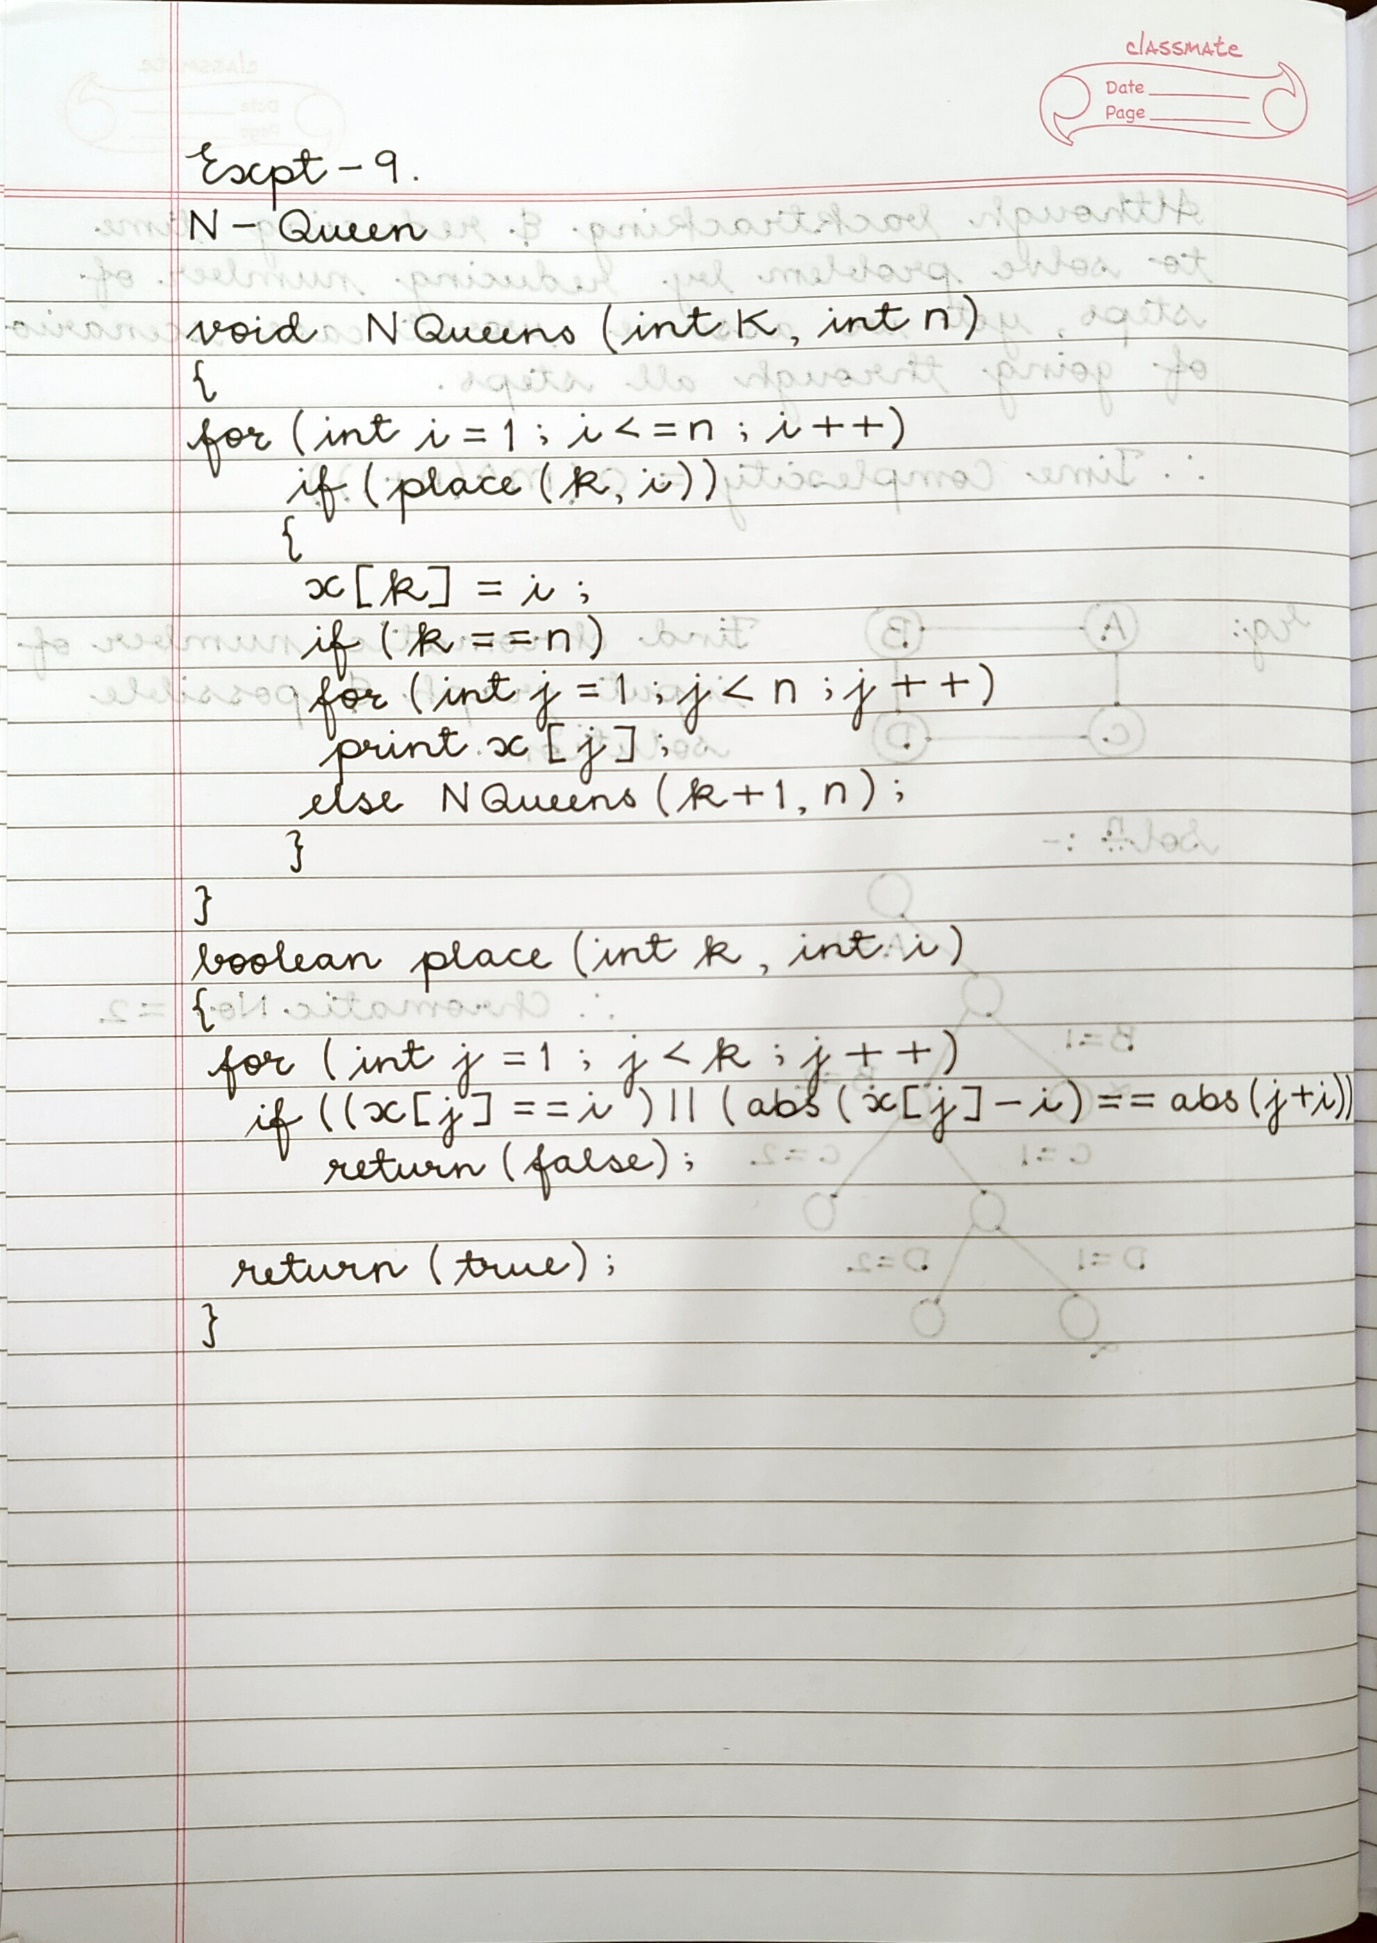 classmate
Date
Page
Expt - 9.
N - Queen
void NQueens (int K, int n)
{
for (int i = 1 ; i <= n ; i ++)
if (place (k, i))
{
x[k] = i ;
if (k == n)
for (int j = 1 ; j < n ; j ++)
print x [j] ;
else NQueens (k+1, n) ;
}
}
boolean place (int k, int i)
{
for (int j = 1 ; j < k ; j ++)
if ((x[j] == i) || (abs (x[j] - i) == abs (j+i))
return (false) ;
return (true) ;
}